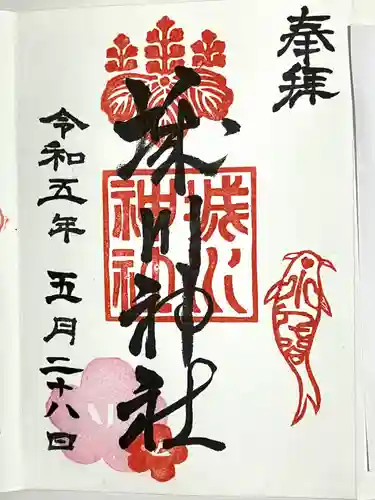 奉拝
城川神社
城川神社
令和五年 五月二十八日